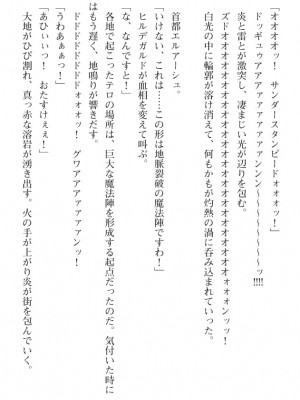 「オオオオッ！　サンダースタンピードォォォッ！」
ドッギュゥアアアアアァァァァンンン〜〜〜〜〜〜〜ッ!!!!
炎と雷とが激突し、凄まじい光が辺りを包む。
ズドオオオオオオオオオオオオオオオオオオオォォォンッ！
白光の中に輪郭が溶け消えて、何もかもが灼熱の渦に呑み込まれていった。
首都エルアーシュ。
「いけない、これは……この形は地脈裂破の魔法陣ですわ！」
ヒルデガルドが血相を変えて叫ぶ。
「な、なんですと！」
各地で起こったテロの場所は、巨大な魔法陣を形成する起点だったのだ。気付いた時に
はもう遅く、地鳴りが響きだす。
ドドドドドドドォォォッ！　グワアアアアァァァンッ！
「うわあぁぁっ！」
「あひぃぃっ！　おたすけぇぇぇ！」
大地がひび割れ、真っ赤な溶岩が湧き出す。火の手が上がり炎が街を包んでいく。